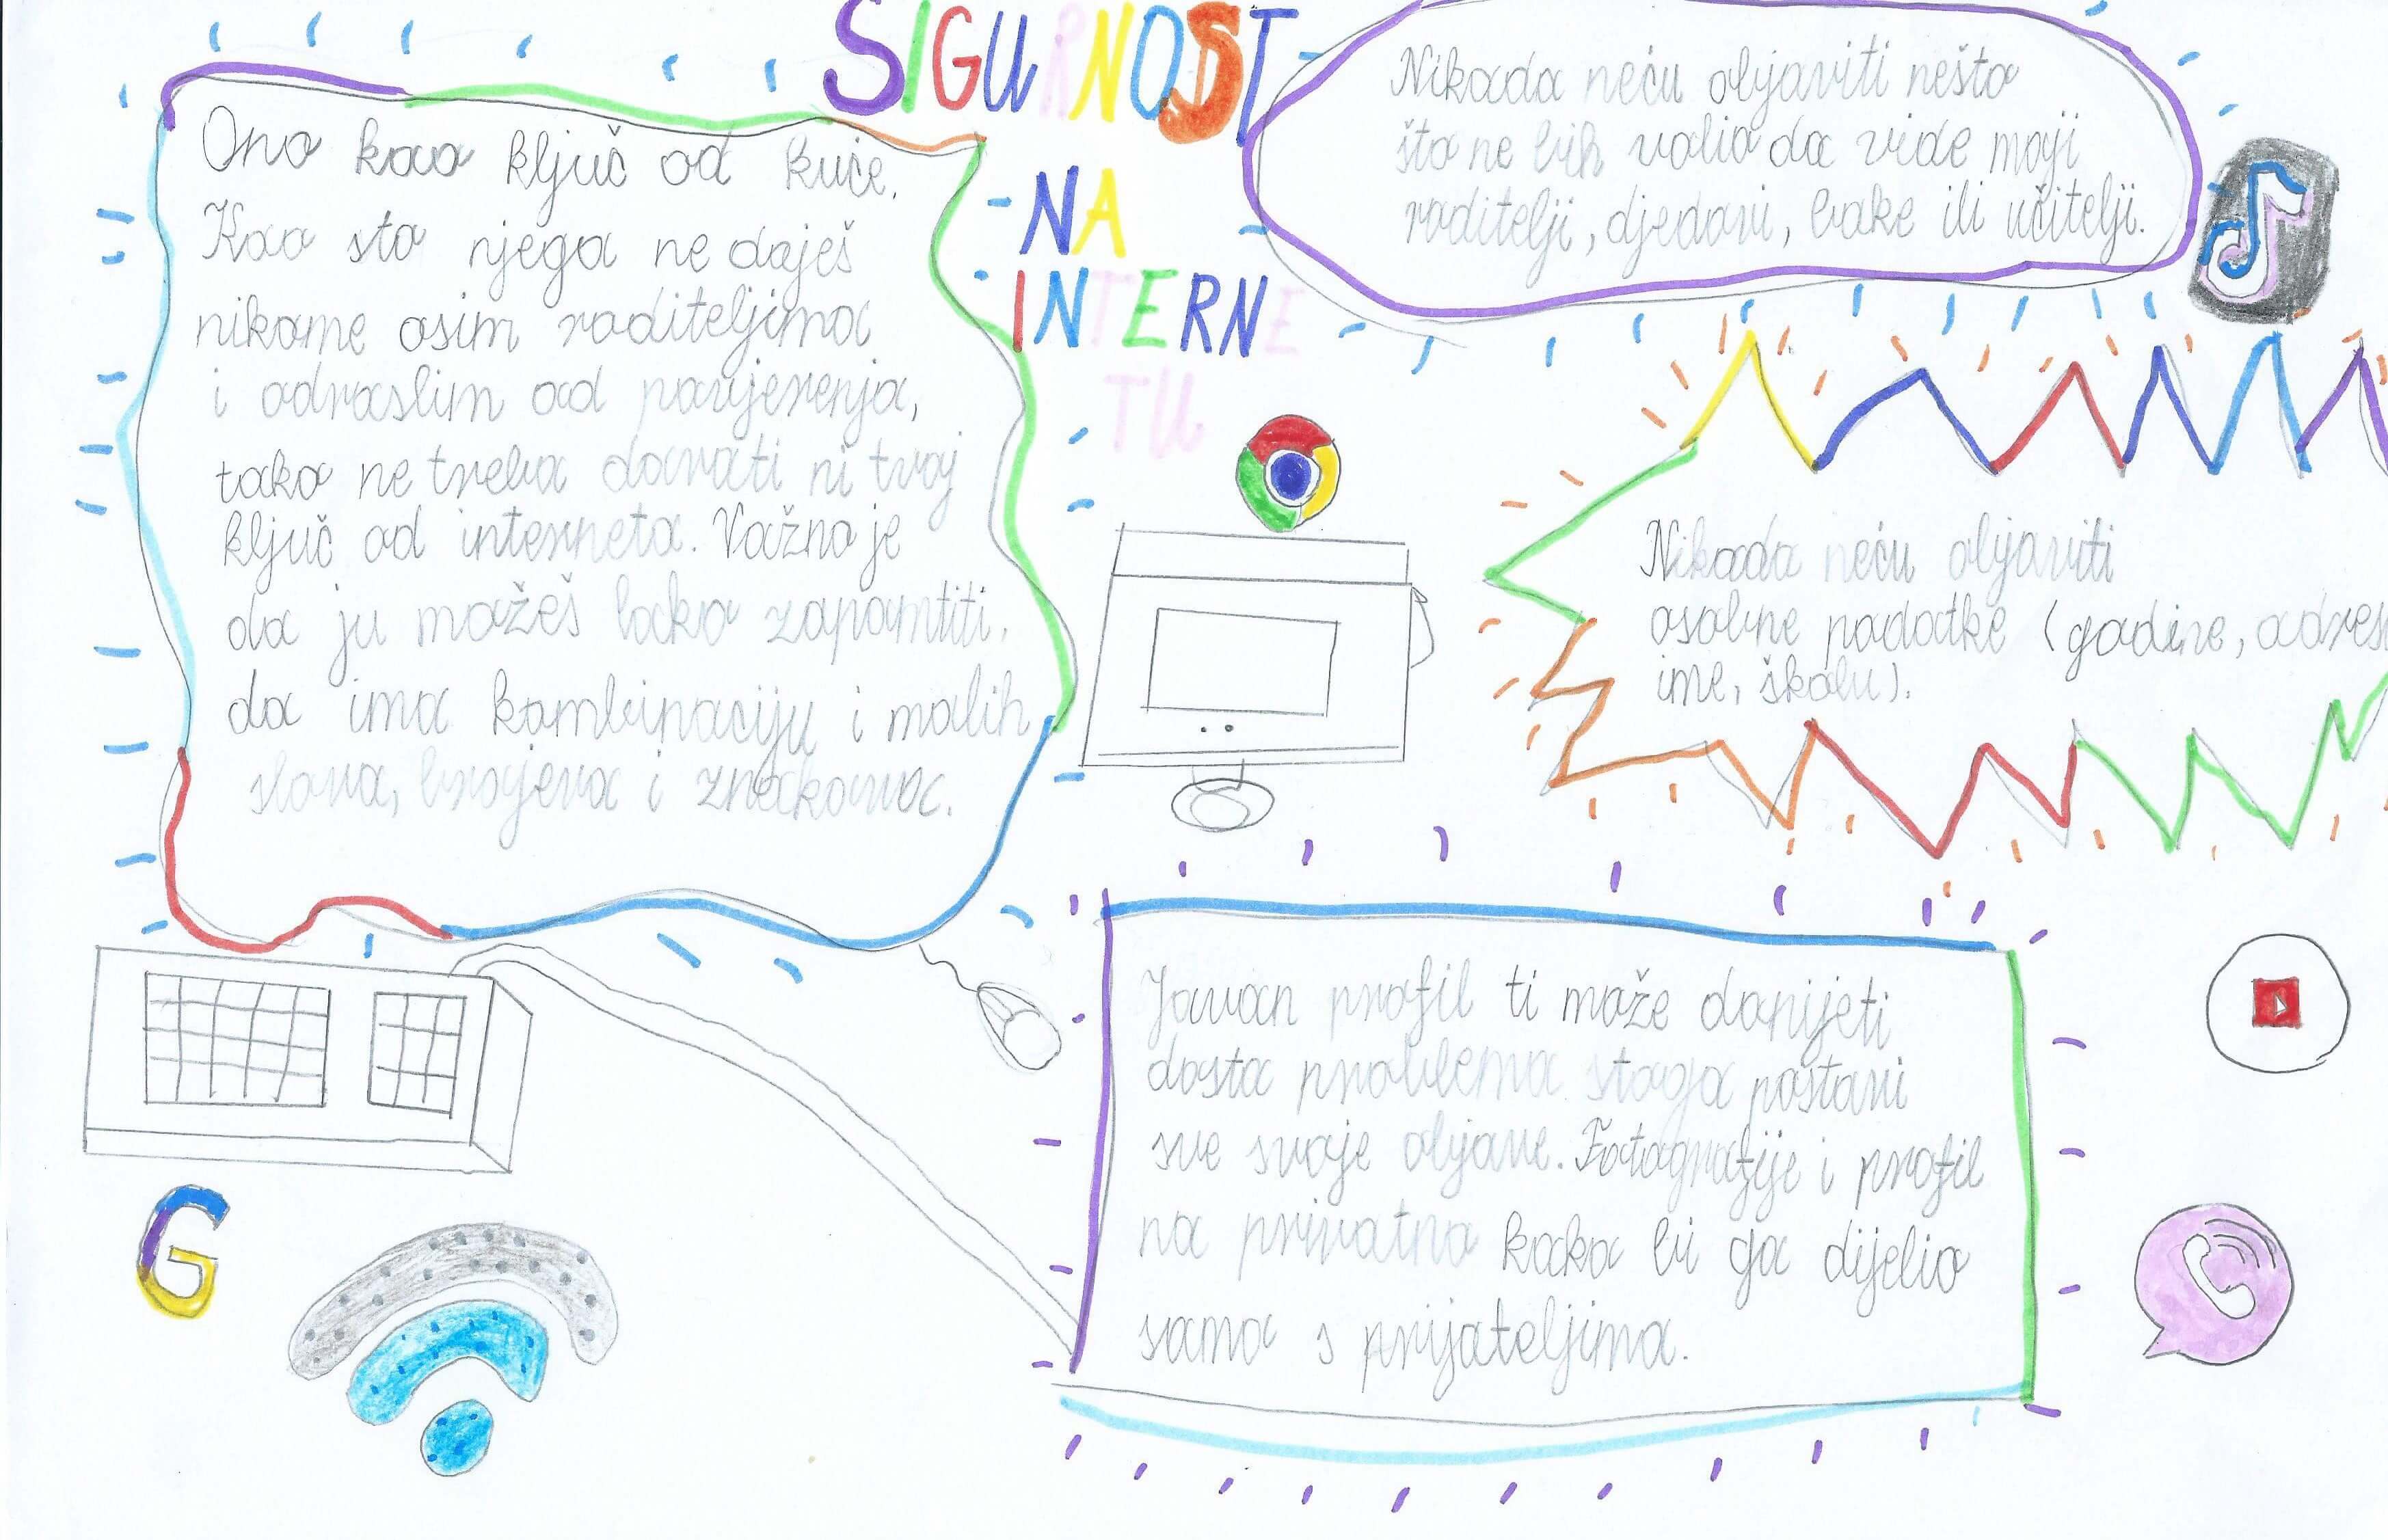 SIGURNOST
NA
INTERNE
TU
Ono kao ključ od kuće.
Kao sto njega ne daješ
nikome osim roditeljima
i odraslim od povjerenja,
tako ne treba davati ni tvoj
ključ od interneta. Važno je
da ju možeš lako zapamtiti.
da ima kombinaciju i malih
slova, brojeva i znakova.
Nikada neću objaviti nešto
što ne bih volio da vide moji
roditelji, djedovi, bake ili učitelji.
Nikada neću objaviti
osobne podatke (godine, adres
ime, školu).
Javan profil ti može donijeti
dosta problema stoga postavi
sve svoje objave. Fotografije i profil
na privatno kako bi ga dijelio
samo s prijateljima.
G